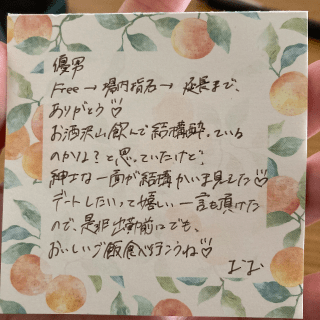 優男
Free→場内指名→延長まで、
ありがとう♡
お酒沢山飲んで結構酔っている
のかは?と思っていたけど、
紳士な一面が結構かいま見えた♡
デートしたいって嬉しい一言も頂けた
ので、是非出勤前にでも、
おいしいご飯食べ行こうね♡